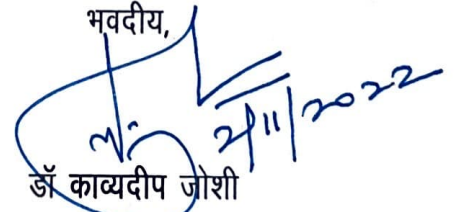 भवदीय,
2/11/2022
डॉ काव्यदीप जोशी